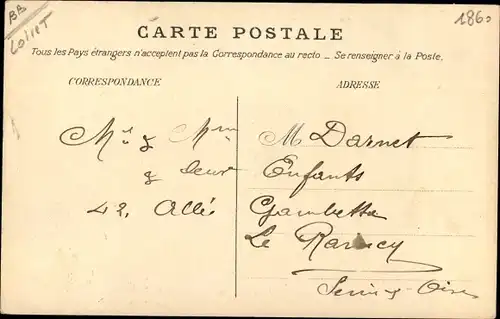 BB
LOIRET
186
CARTE POSTALE
Tous les Pays étrangers n'acceptent pas la Correspondance au recto _ Se renseigner à la Poste.
CORRESPONDANCE ADRESSE
Mr & Mme Darnet
& Leurs Enfants
42, Allée Gambetta
Le Raincy
Seine & Oise